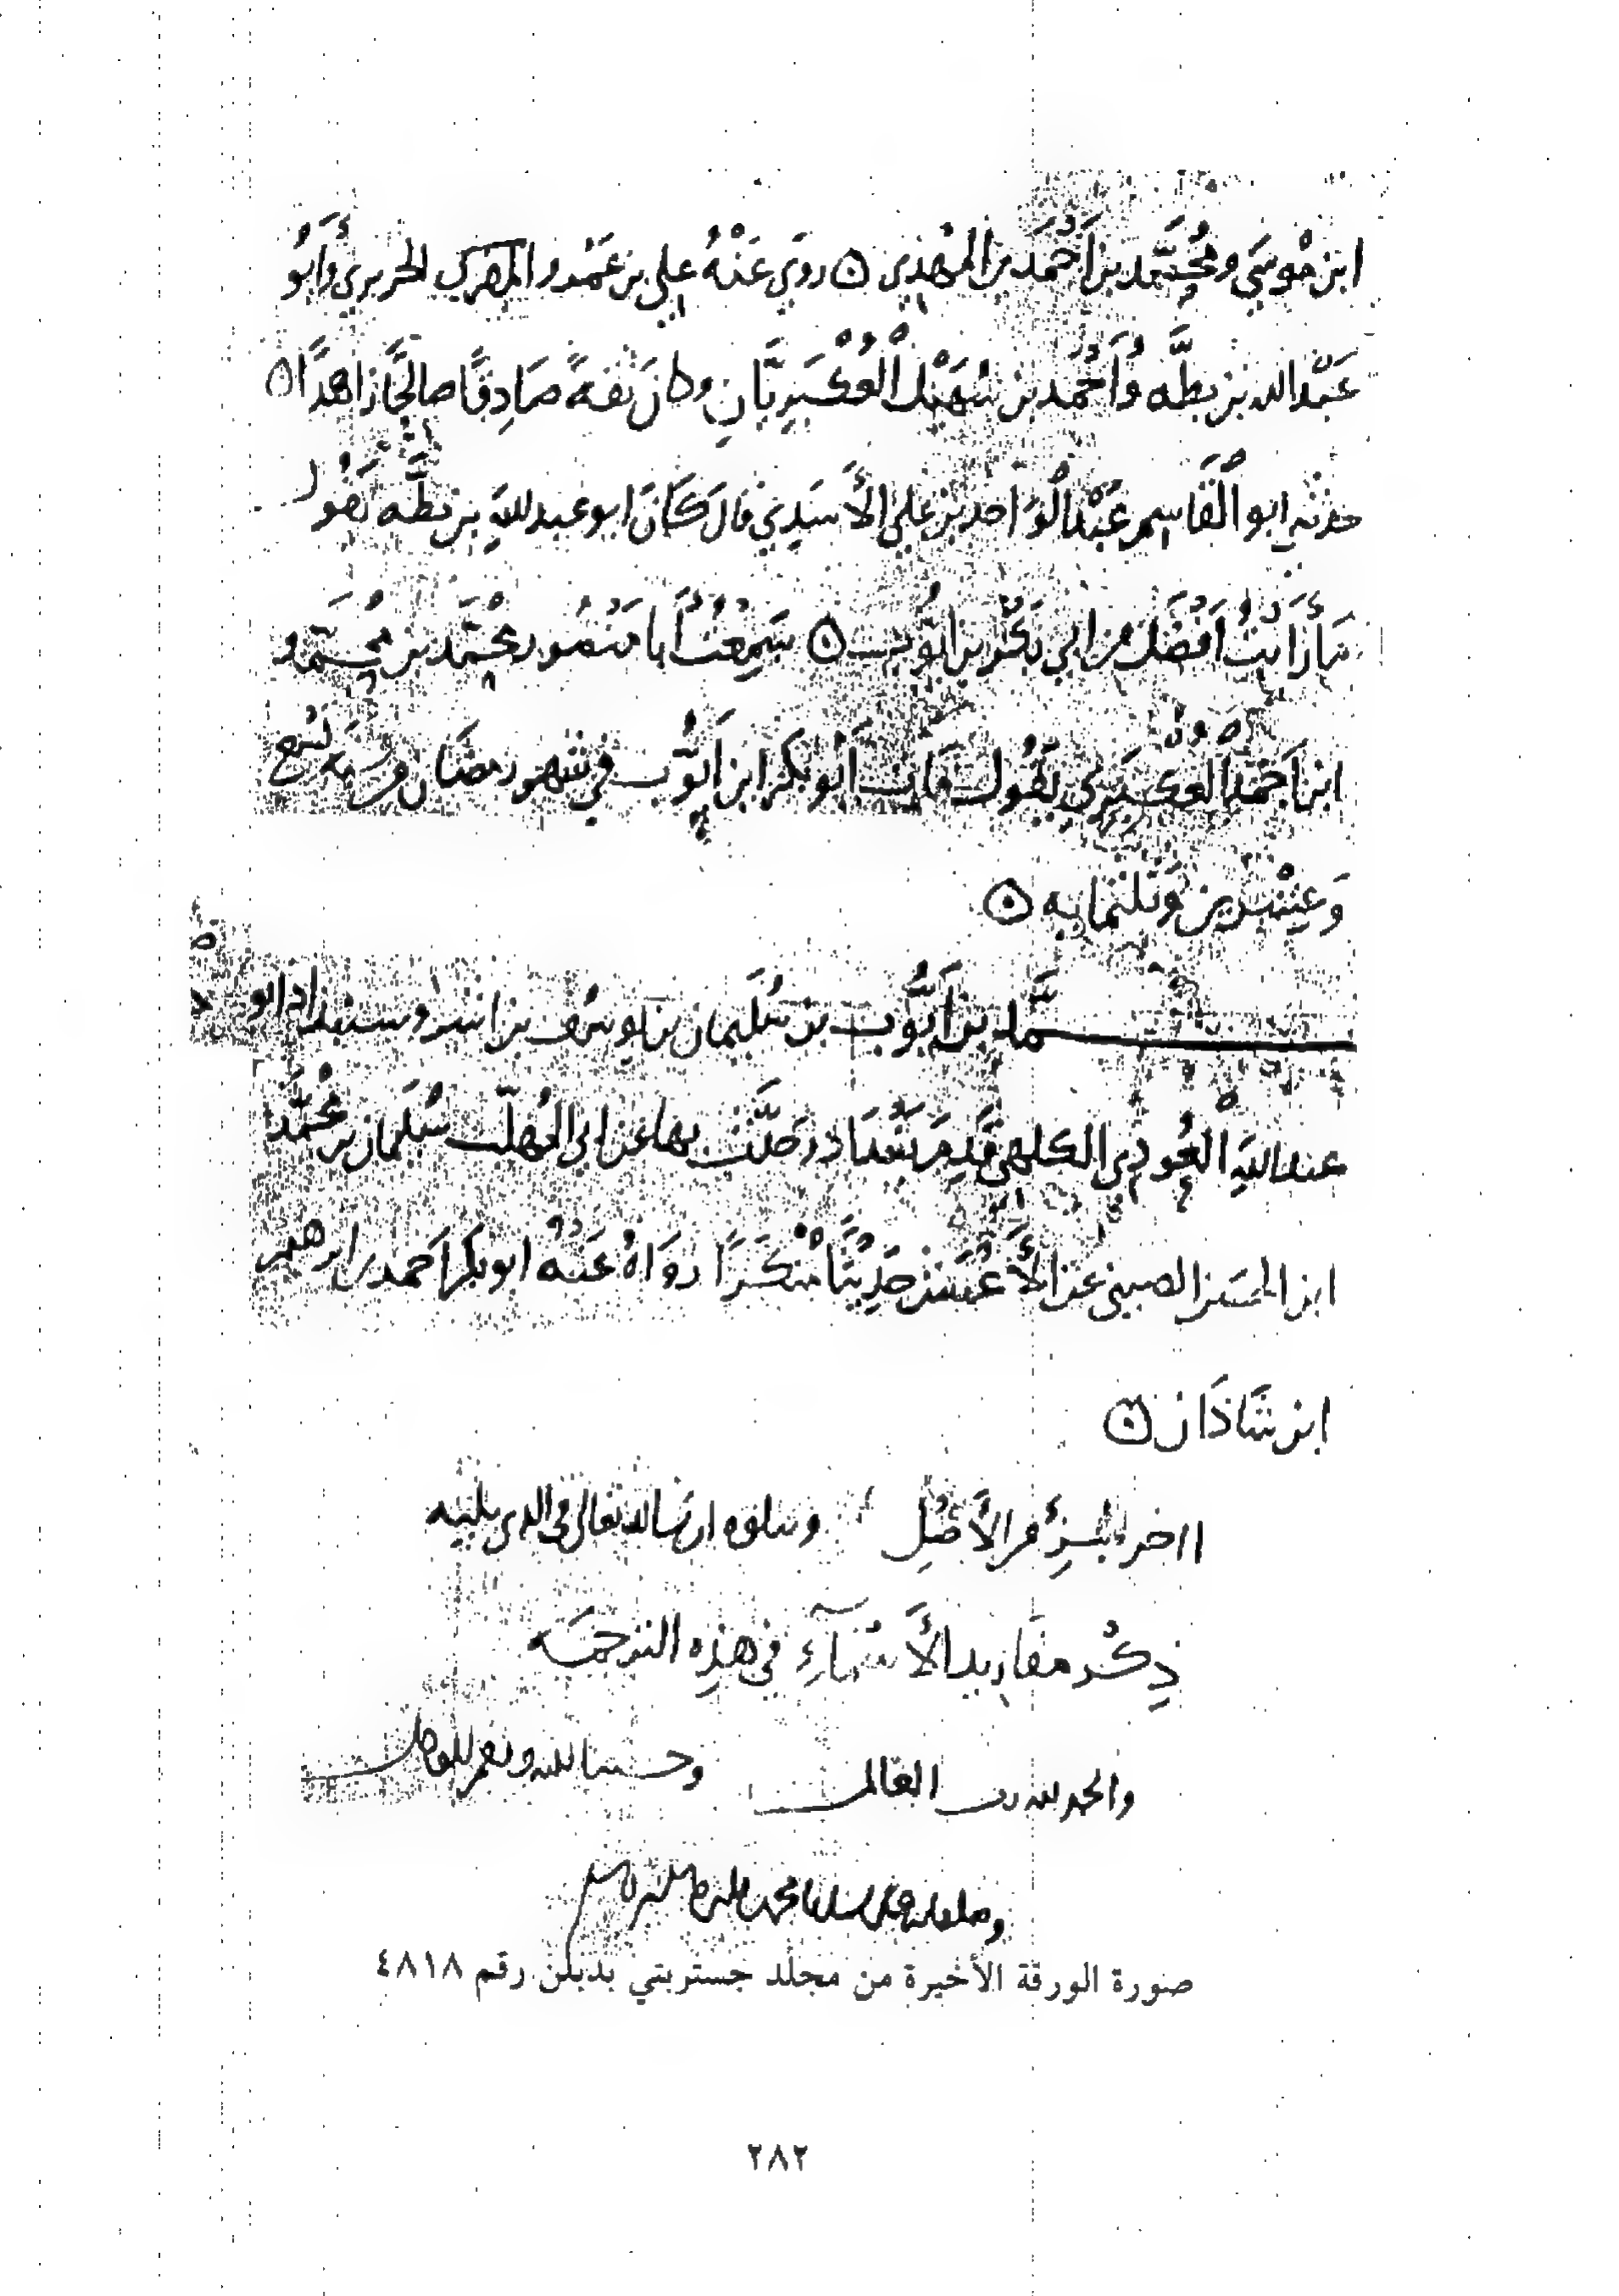 ابن موسى ومُحَمَّد بن أَحْمَد بن المَهْدِي ۞ روى عَنْهُ علي بن عَمْرو الحريري وأَبُو
عَبْد الله بن بطَّه وأَحْمَد بن سُهَيْل العُكْبَرِيَّانِ وكان ثقةً صَادِقًا صالحًا زاهدًا ۞
حدثني ابو القَاسِم عَبْدُ الوَاحد بن علي الأَسَدِي قال كَانَ ابو عبد اللهِ بن بطَّه يَقُول
مَا رَأَيتُ أَفْضَل من ابي بَكْر بن ايُّوب ۞ سَمِعْتُ أَبا مَنْصُور مُحَمَّد بن مُحَمَّد
ابن أَحْمَد العكبَرِي يَقُول مَات أَبُو بكر ابن أَيُّوب في شهر رمضَان من سنه تسْع
وَعِشْرين وثلثمايه ۞
مُحَمَّد بن أَيُّوب بن سُلَيمان بن يوسُف بن اشروسنداد ابو
عبد اللهِ العُودِي الكلهي قَدِمَ بَغْدَاد وحَدَّث بها عن ابي المُهلَّب سُلَيمان بن مُحَمَّد
ابن الحَسَن الصيني عن الأَعْمَش حَدِيثًا مُنْكَرًا روَاهُ عَنْهُ ابو بكر أَحمد بن ابرهيم
ابن شَاذَان ۞
اخر الجزءُ من الأَصْلِ وىتلوه ان شا الله تعالى في الذي يليه
ذِكْر مفاريد الأَسْمَآءِ في هذِه الترجمَه
والحمد لله رب العالمين وحسبنا الله ونعم الوكيل
وصلواته على سيدنا محمد
صورة الورقة الأخيرة من مجلد جستربتي بدبلن رقم ٤٨١٨
٢٨٢